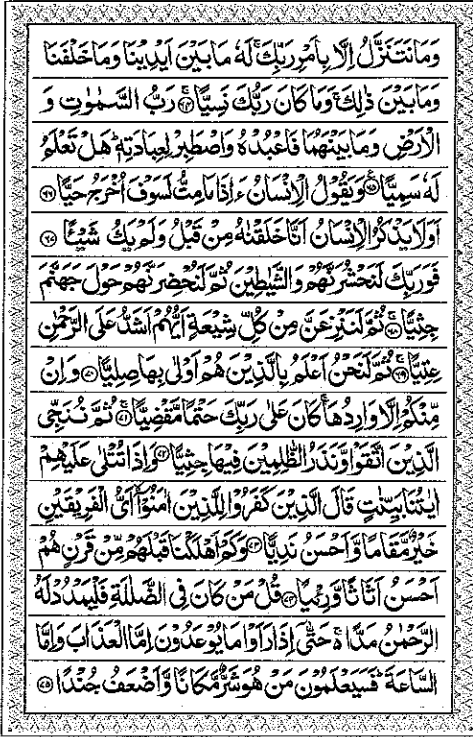 وَمَا نَتَنَزَّلُ اِلَّا بِاَمْرِ رَبِّكَ ۚ لَهٗ مَا بَيْنَ اَيْدِيْنَا وَمَا خَلْفَنَا
وَمَا بَيْنَ ذٰلِكَ ۚ وَمَا كَانَ رَبُّكَ نَسِيًّا ۚ‏﴿۶۴﴾ رَبُّ السَّمٰوٰتِ وَ
الْاَرْضِ وَمَا بَيْنَهُمَا فَاعْبُدْهُ وَاصْطَبِرْ لِعِبَادَتِهٖ ؕ هَلْ تَعْلَمُ
لَهٗ سَمِيًّا ﴿۶۵﴾ وَيَقُوْلُ الْاِنْسَانُ ءَاِذَا مَا مِتُّ لَسَوْفَ اُخْرَجُ حَيًّا ﴿۶۶﴾
اَوَلَا يَذْكُرُ الْاِنْسَانُ اَنَّا خَلَقْنٰهُ مِنْ قَبْلُ وَلَمْ يَكُ شَيْـًٔا ﴿۶۷﴾
فَوَرَبِّكَ لَنَحْشُرَنَّهُمْ وَالشَّيٰطِيْنَ ثُمَّ لَنُحْضِرَنَّهُمْ حَوْلَ جَهَنَّمَ
جِثِيًّا ۚ‏﴿۶۸﴾ ثُمَّ لَنَنْزِعَنَّ مِنْ كُلِّ شِيْعَةٍ اَيُّهُمْ اَشَدُّ عَلَى الرَّحْمٰنِ
عِتِيًّا ۚ‏﴿۶۹﴾ ثُمَّ لَنَحْنُ اَعْلَمُ بِالَّذِيْنَ هُمْ اَوْلٰى بِهَا صِلِيًّا ﴿۷۰﴾ وَاِنْ
مِّنْكُمْ اِلَّا وَارِدُهَا ۚ كَانَ عَلٰى رَبِّكَ حَتْمًا مَّقْضِيًّا ۚ‏﴿۷۱﴾ ثُمَّ نُنَجِّى
الَّذِيْنَ اتَّقَوْا وَّنَذَرُ الظّٰلِمِيْنَ فِيْهَا جِثِيًّا ﴿۷۲﴾ وَاِذَا تُتْلٰى عَلَيْهِمْ
اٰيٰتُنَا بَيِّنٰتٍ قَالَ الَّذِيْنَ كَفَرُوْا لِلَّذِيْنَ اٰمَنُوْۤا اَىُّ الْفَرِيْقَيْنِ
خَيْرٌ مَّقَامًا وَّاَحْسَنُ نَدِيًّا ﴿۷۳﴾ وَكَمْ اَهْلَكْنَا قَبْلَهُمْ مِّنْ قَرْنٍ هُمْ
اَحْسَنُ اَثَاثًا وَّرِءْيًا ﴿۷۴﴾ قُلْ مَنْ كَانَ فِى الضَّلٰلَةِ فَلْيَمْدُدْ لَهُ
الرَّحْمٰنُ مَدًّا ۚ حَتّٰٓى اِذَا رَاَوْا مَا يُوْعَدُوْنَ اِمَّا الْعَذَابَ وَاِمَّا
السَّاعَةَ ؕ فَسَيَعْلَمُوْنَ مَنْ هُوَ شَرٌّ مَّكَانًا وَّاَضْعَفُ جُنْدًا ﴿۷۵﴾